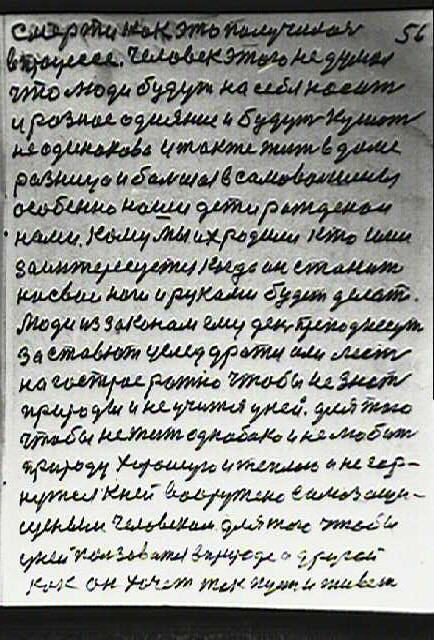 смерти как это получилось 56
в процессе. Человек этого не думал
что люди будут на себя носит
и разное одияние и будут кушат
не одинаково и также жит в доме
разница и болшая в самоволии
особенно наши дети рожденаи
нами. Кому мы их родили кто ими
заинтересуется когда он станит
на свои ноги и руками будит делат.
Люди из законам ему ден преподнесут
заставют целед драти или лест
на гострае ражно чтобы не знат
природы и не учится у ней. Для того
чтобы не жит однобоко и не любит
природу хорошую и теплаю и не вер-
нутся к ней вооружено самозащи-
щеным человеком. Для того чтобы
у ней ползоватся в природе а другой
как он хочет так пуст и живет